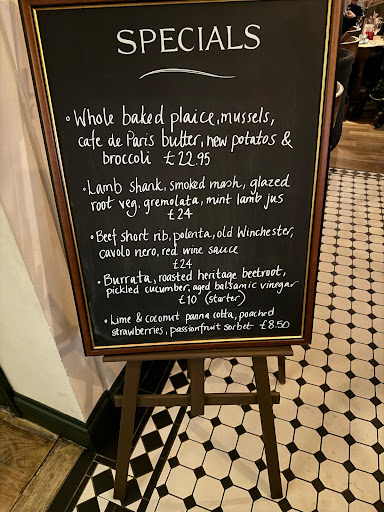 SPECIALS
• Whole baked plaice, mussels,
cafe de Paris butter, new potatos &
broccoli £22.95
• Lamb shank, smoked mash, glazed
root veg, gremolata, mint lamb jus
£24
• Beef short rib, polenta, old Winchester,
cavolo nero, red wine sauce
£24
• Burrata, roasted heritage beetroot,
pickled cucumber, aged balsamic vinegar
£10 (starter)
• Lime & coconut panna cotta, poached
strawberries, passionfruit sorbet £8.50